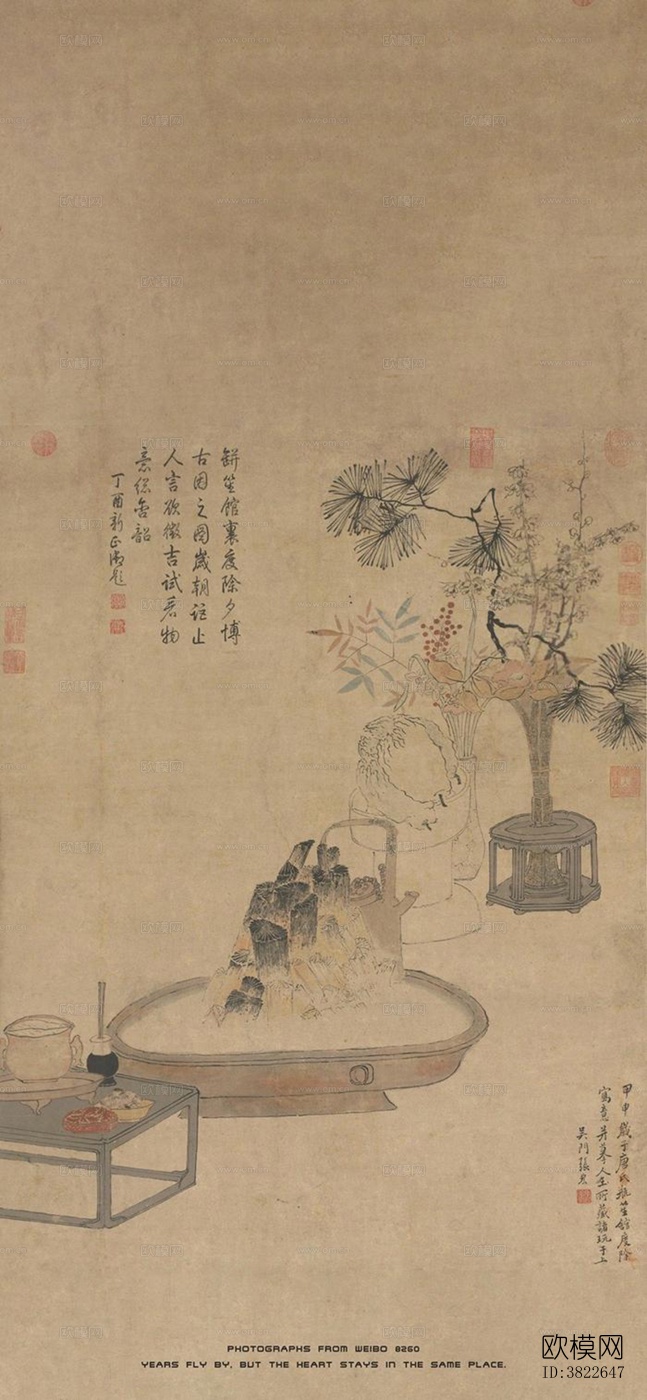 缾笙館裏度除夕博
古因之圖歲朝詎止
人言欲徵吉試看物
意總含韶
丁酉新正御題
甲申歲于唐氏瓶笙館度除
寫意并摹人主所藏諸玩于上
吴門張
PHOTOGRAPHS FROM WEIBO 8260
YEARS FLY BY, BUT THE HEART STAYS IN THE SAME PLACE.
欧模网
ID:3822647